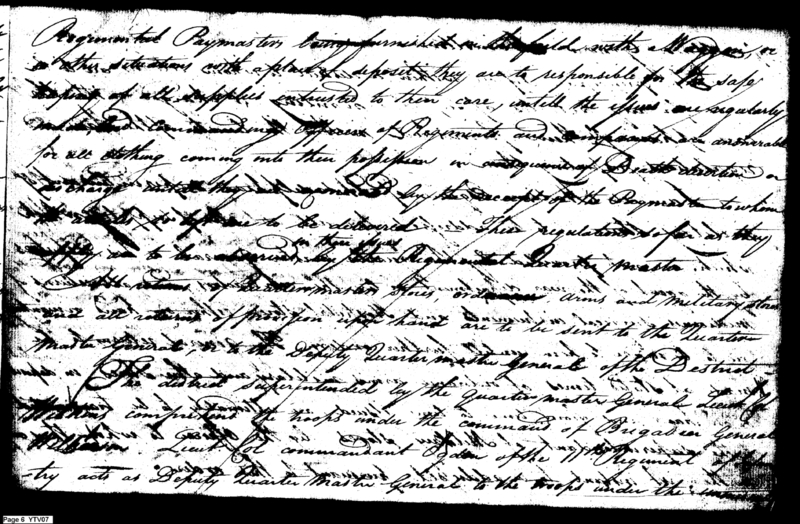 Regimental Paymasters being furnished in the field with a Waggon, or
in other situations with a place of deposit they are to responsible for the safe
of all supplies intrusted to their care, untill the issues are regularly
made and Commanding Officers of Regiments and companies are answerable
for all clothing coming into their possession in consequence of Death desertion or
discharge untill they are by the receipt of the Paymaster to whom
to be delivered These regulations so far as they
in their issues
apply are to be observed by the Regimental Quarter master
All returns of Quartermasters Stores, ordnance, arms and Military Stores
and all returns of provision upon hand are to be sent to the Quarter
master General, or to the Deputy Quartermaster Generals of the District
The district superintended by the Quartermaster General Lieut Col
comprises the troops under the command of Brigadier General
Wilkinson Lieut Col commandant of the 11th Regiment of
try acts as Deputy Quarter Master General to the troops under the
Page 6 YTV07